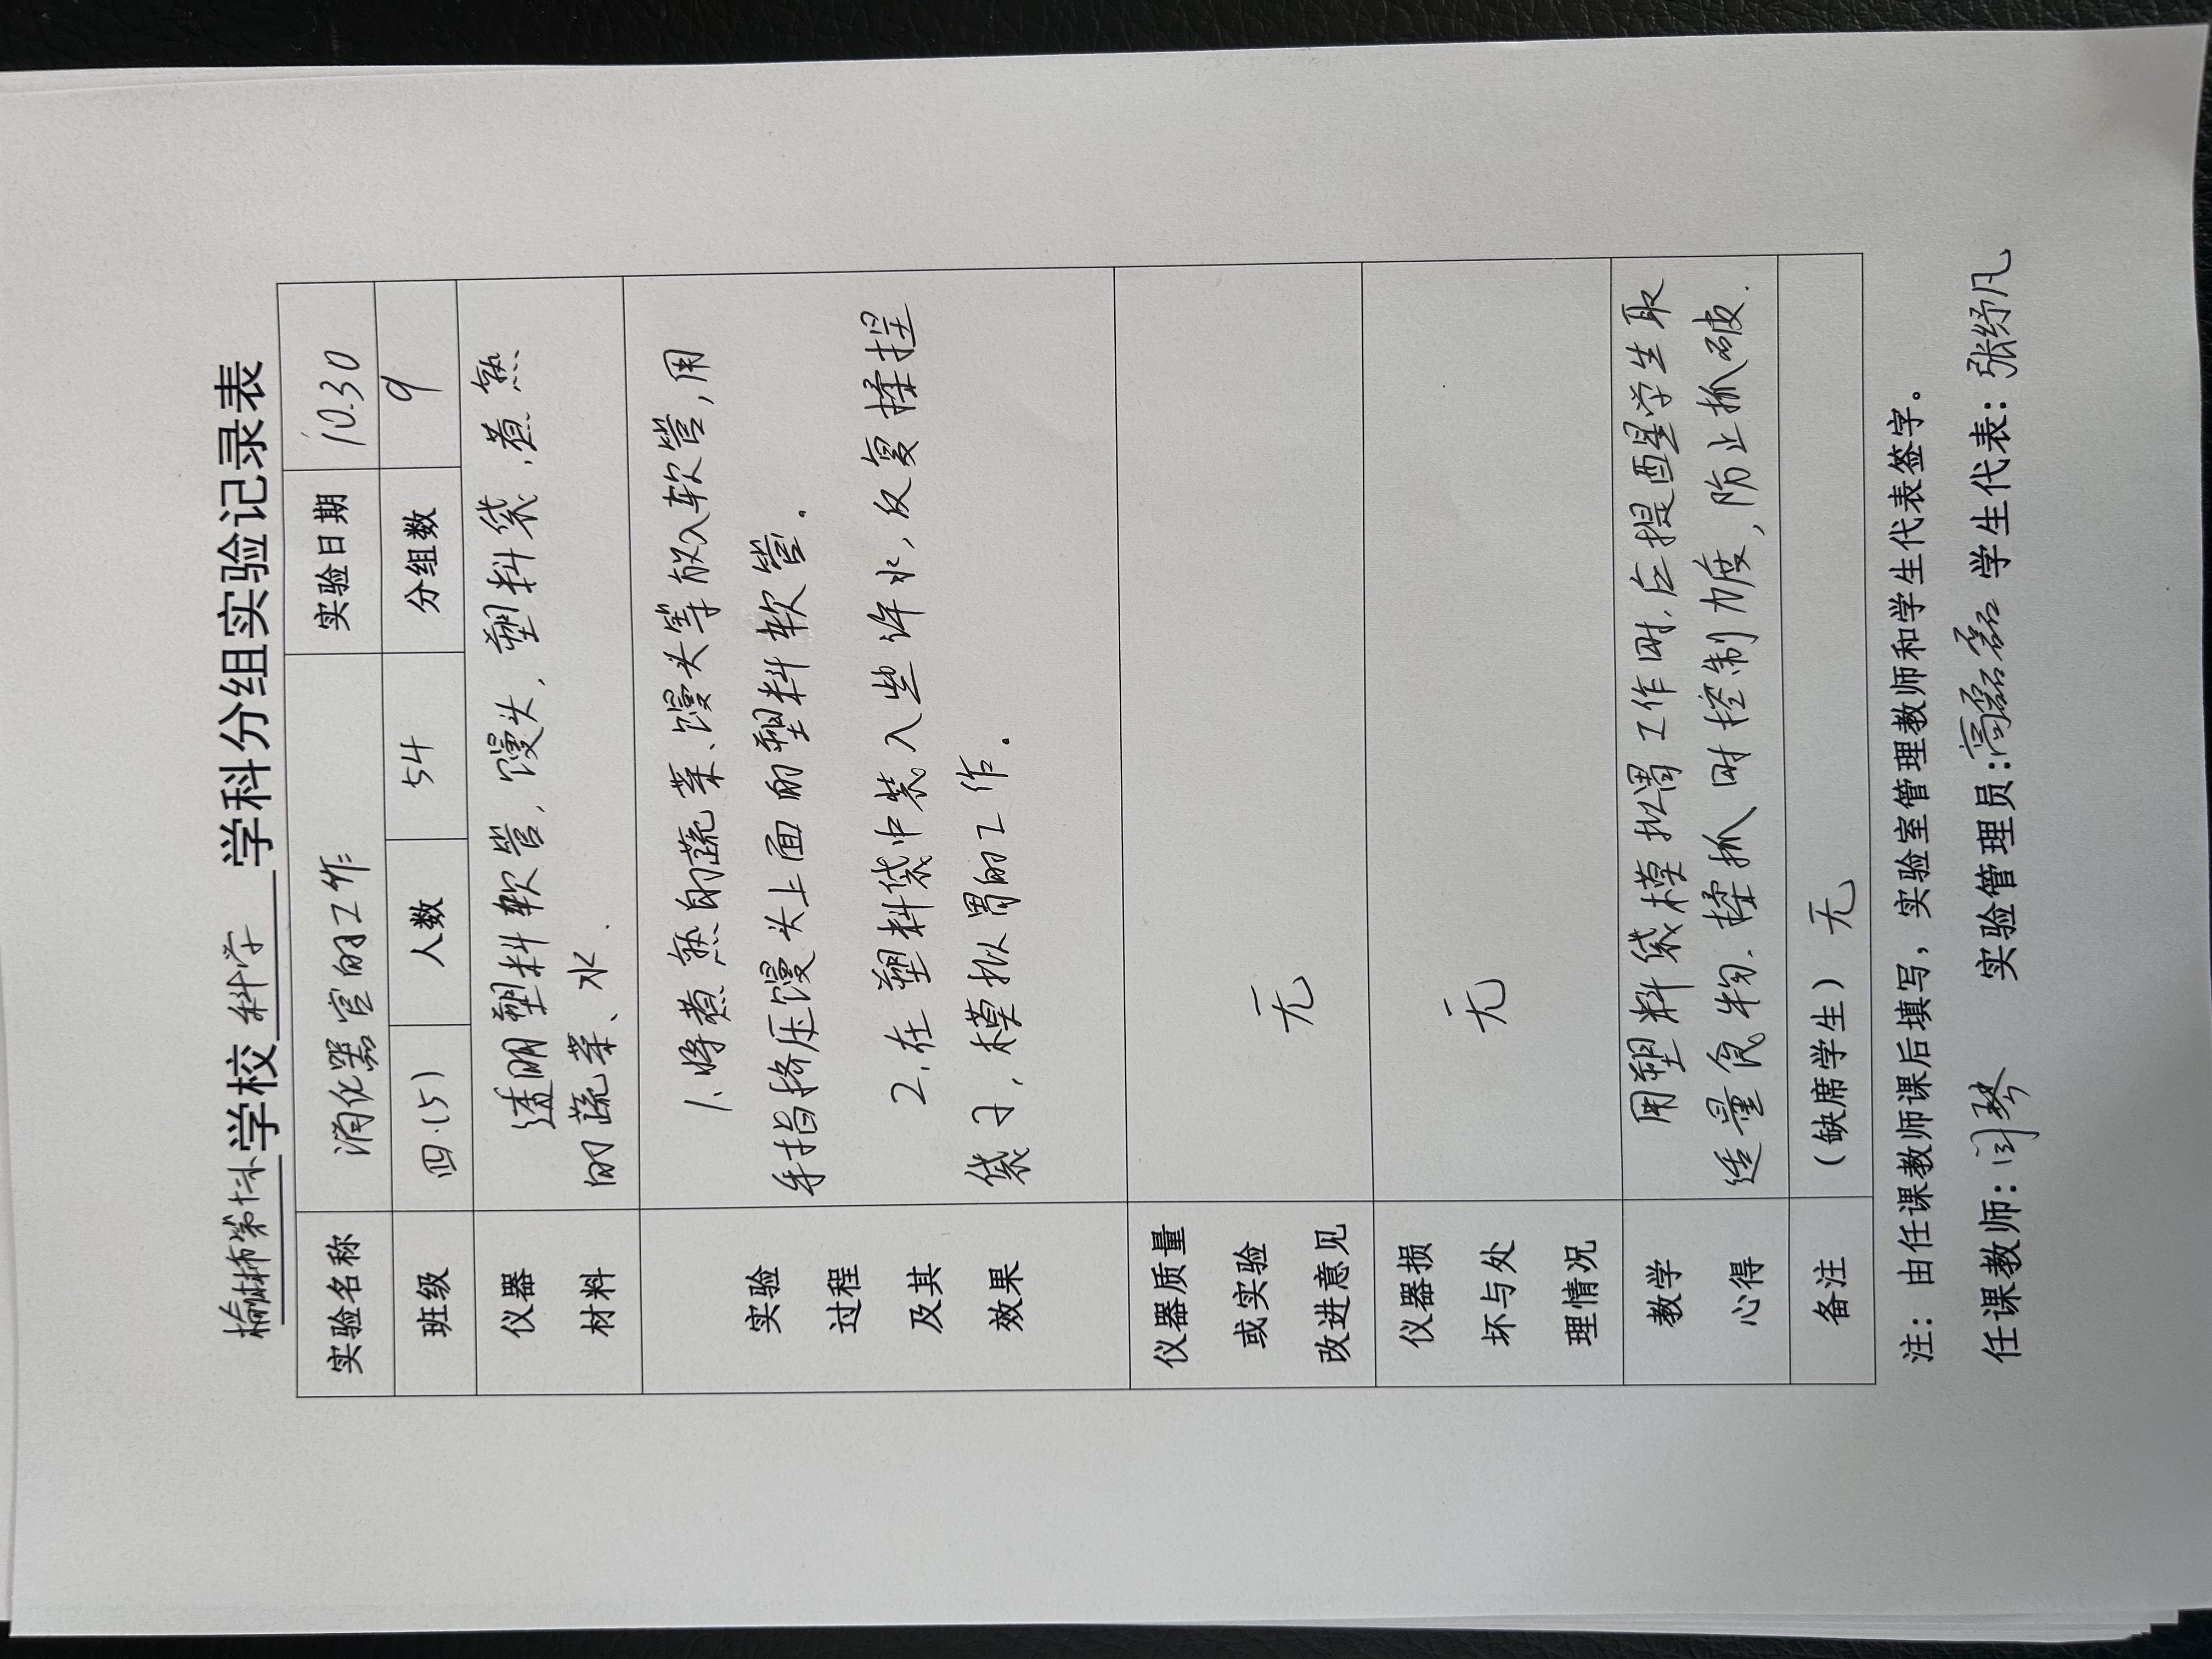 榆林市第十小学校 科学 学科分组实验记录表
实验名称 消化器官的工作 实验日期 10.30
班级 四.(5) 人数 54 分组数 9
仪器材料 透明塑料软管、馒头、塑料袋、煮熟
的蔬菜、水.
实验过程及其效果
1.将煮熟的蔬菜、馒头等放入软管,用
手指挤压馒头上面的塑料软管。
2.在塑料袋中装入些许水,反复揉捏
袋子,模拟胃的工作。
仪器质量或实验改进意见 无
仪器损坏与处理情况 无
教学心得 用塑料袋模拟胃工作时,应提醒学生取
适量食物.揉抓时控制力度,防止抓破.
备注 (缺席学生) 无
注:由任课教师课后填写,实验室管理教师和学生代表签字。
任课教师:闫琴 实验管理员:高磊磊 学生代表:张纾凡